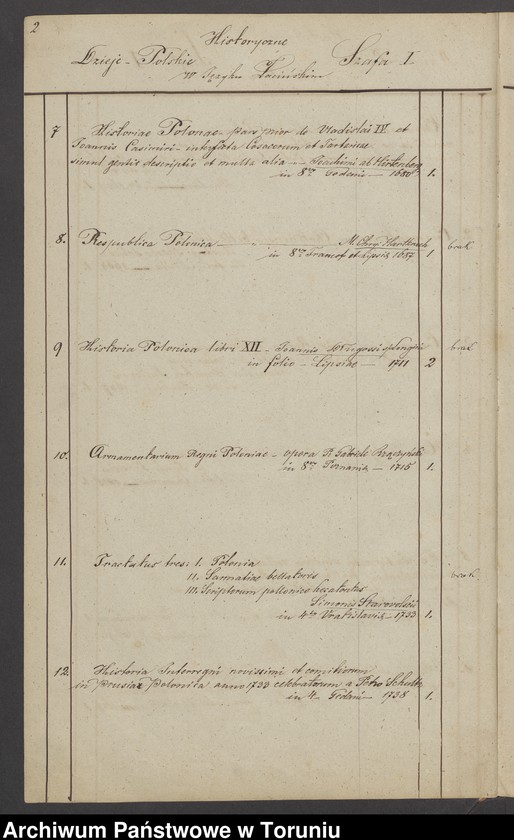 2
Historyczne
Dzieje - Polskie Szafa I.
w Języku Łacińskim
7 Historiae Polonae pars prior de Vladislai IV et
Joannis Casimiri - interjecta Cosacorum et Tartariae
simul gentis descriptio et multa alia — Joachimi ab Hirtenberg
in 8vo Gedani — 1680 1.
8. Respublica Polonica — M. Chrp. Hartknoch
in 8vo Francof et Lipsiæ 1687 1 brak
9 Historia Polonica libri XII - Joannis Dlugossi s. Longini
in folio - Lipsiae — 1711 2 brak
10. Armamentarium Regni Poloniae - opera P. Gabriele Rzączyński
in 8vo Posnaniæ — 1715 1.
11. Tractatus tres: I. Polonia
II. Sarmatiae bellatores
III. Scriptorum pollonico hecatontas brak
Simonis Starovolscii
in 4to Vratislaviæ - 1733 1.
12. Historia Interregni novissimi et comitiorum
in Prussia Polonica anno 1733 celebratorum a Petro Schultz
in 4- Gedani — 1738 1.
Archiwum Państwowe w Toruniu